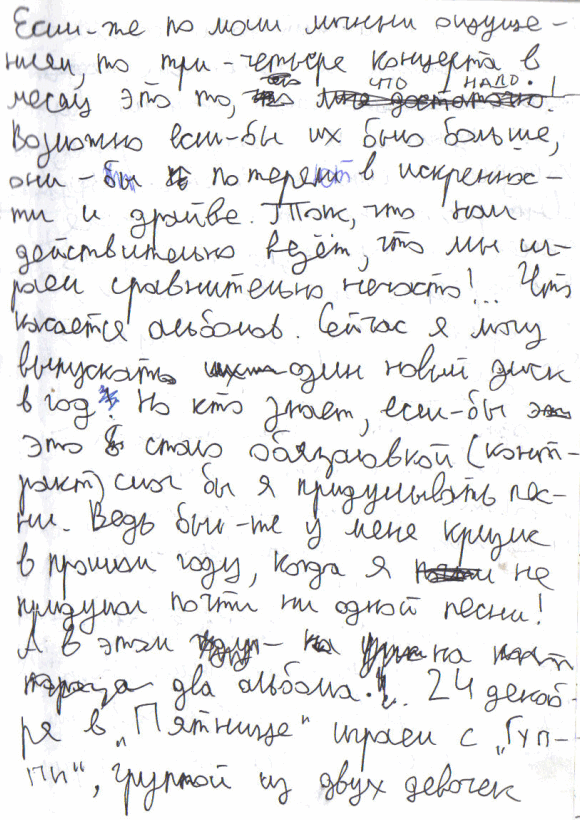 Если-же по моим личным ощуще-
ниям, то три-четыре концерта в
месяц это то, что надо!
Возможно если-бы их было больше,
они-бы потеряли в искреннос-
ти и драйве. Так, что нам
действительно везёт, что мы иг-
раем сравнительно нечасто!.. Что
касается альбомов. Сейчас я могу
выпускать один новый диск
в год. Но кто знает, если-бы
это стало обязаловкой (конт-
ракт) смог бы я придумывать пес-
ни. Ведь был-же у меня кризис
в прошлом году, когда я не
придумал почти ни одной песни!
А в этом на
два альбома. 24 декаб-
ря в „Пятнице" играем с „Гуп-
пи", группой из двух девочек